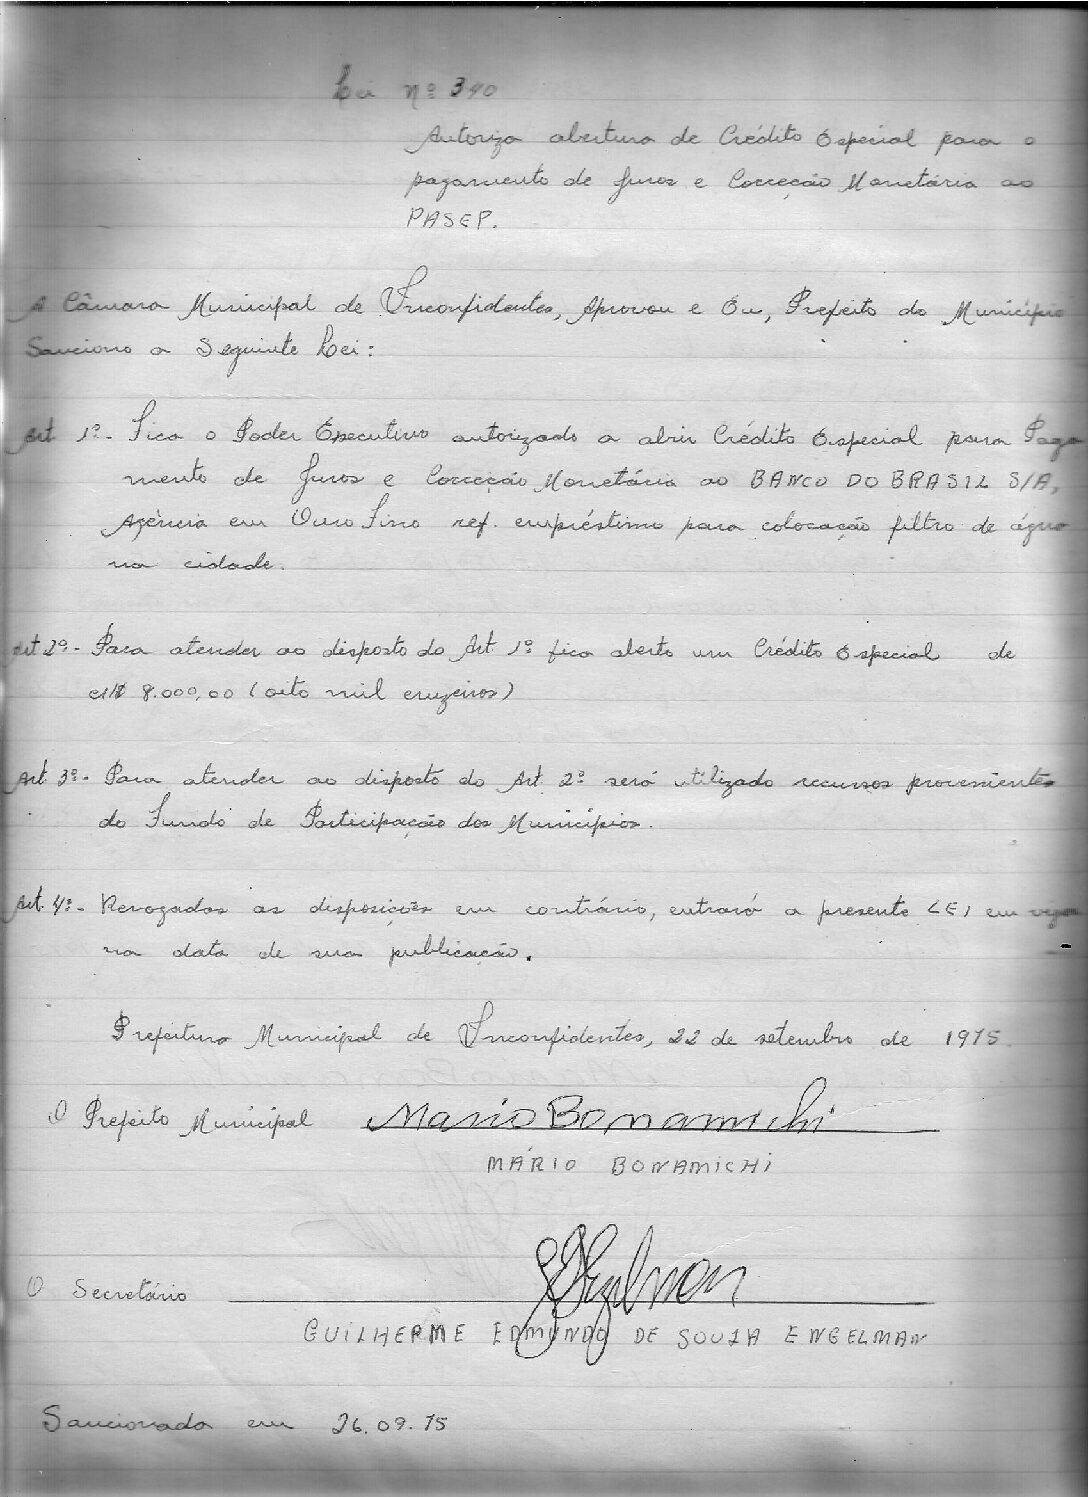 Lei nº 340
Autoriza abertura de Crédito Especial para o
pagamento de Juros e Correção Monetária ao
PASEP.
A Câmara Municipal de Inconfidentes, Aprovou e Eu, Prefeito do Município
Sanciono a Seguinte Lei:
Art 1º - Fica o Poder Executivo autorizado a abrir Crédito Especial para Paga
mento de Juros e Correção Monetária ao BANCO DO BRASIL S/A,
Agência em Ouro Fino ref. empréstimo para colocação filtro de água
na cidade.
Art 2º - Para atender ao disposto do Art 1º fica aberto um Crédito Especial de
cr$ 8.000,00 (oito mil cruzeiros)
Art 3º - Para atender ao disposto do Art 2º será utilizado recursos provenientes
do Fundo de Participação dos Municípios.
Art. 4º - Revogadas as disposições em contrário, entrará a presente LEI em vigor
na data de sua publicação.
Prefeitura Municipal de Inconfidentes, 22 de setembro de 1975.
O Prefeito Municipal Mario Bonamichi
MÁRIO BONAMICHI
O Secretário
GUILHERME EDMUNDO DE SOUZA ENGELMAN
Sancionada em 26.09.75